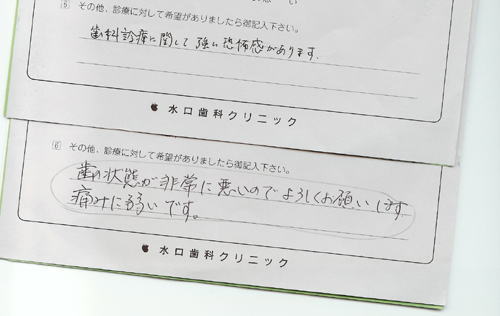 ⑤ その他、診療に対して希望がありましたら御記入下さい。
歯科診療に関して強い恐怖感があります.
水口歯科クリニック
⑥ その他、診療に対して希望がありましたら御記入下さい。
歯の状態が非常に悪いのでよろしくお願いします
痛みに弱いです。
水口歯科クリニック